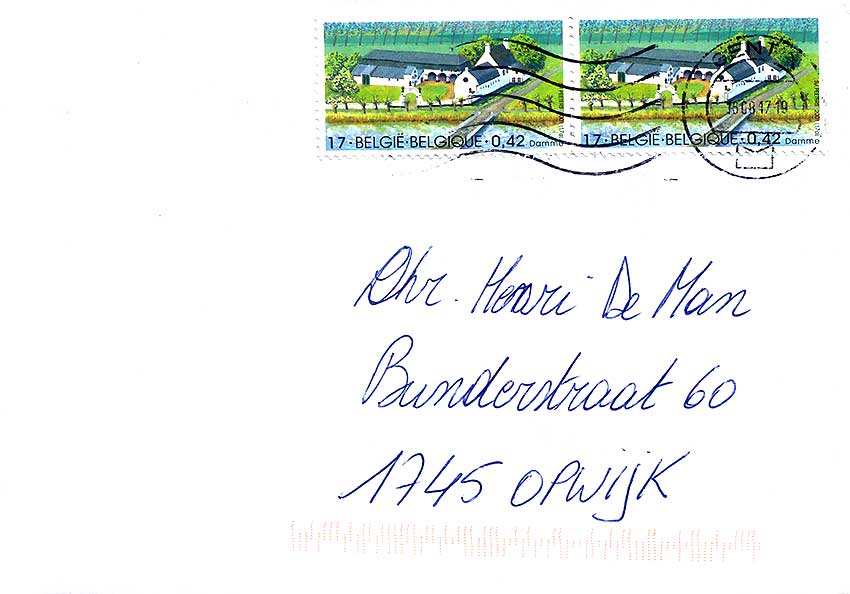 17 · BELGIË · BELGIQUE · 0,42 Damme
17 · BELGIË · BELGIQUE · 0,42 Damme
GENT
Dhr. Henri De Man
Bunderstraat 60
1745 OPWIJK